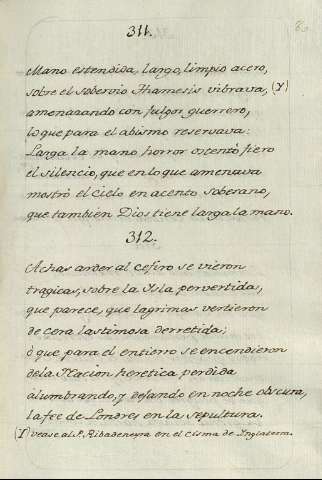 311.
Mano estendida, largo, limpio acero,
sobre el sobervio Thamesis vibrava, (Y)
amenazando con fulgor guerrero,
lo que para el abismo reservava:
Larga la mano horror ostentò fiero
el silencio, que en lo que amenava
mostrò el Cielo en acento soberano,
que tambien Dios tiene larga la mano.
312.
Achas arder al Cefiro se vieron
tragicas, sobre la Isla pervertida,
que parece, que lagrimas vertieron
de cera lastimosa derretida;
ò que para el entierro se encendieron
dela Nacion heretica perdida
alumbrando, y dejando en noche obscura,
la fee de Londres en la sepultura.
(Y) vease al P. Ribadeneyra en el Cisma de Inglaterra.